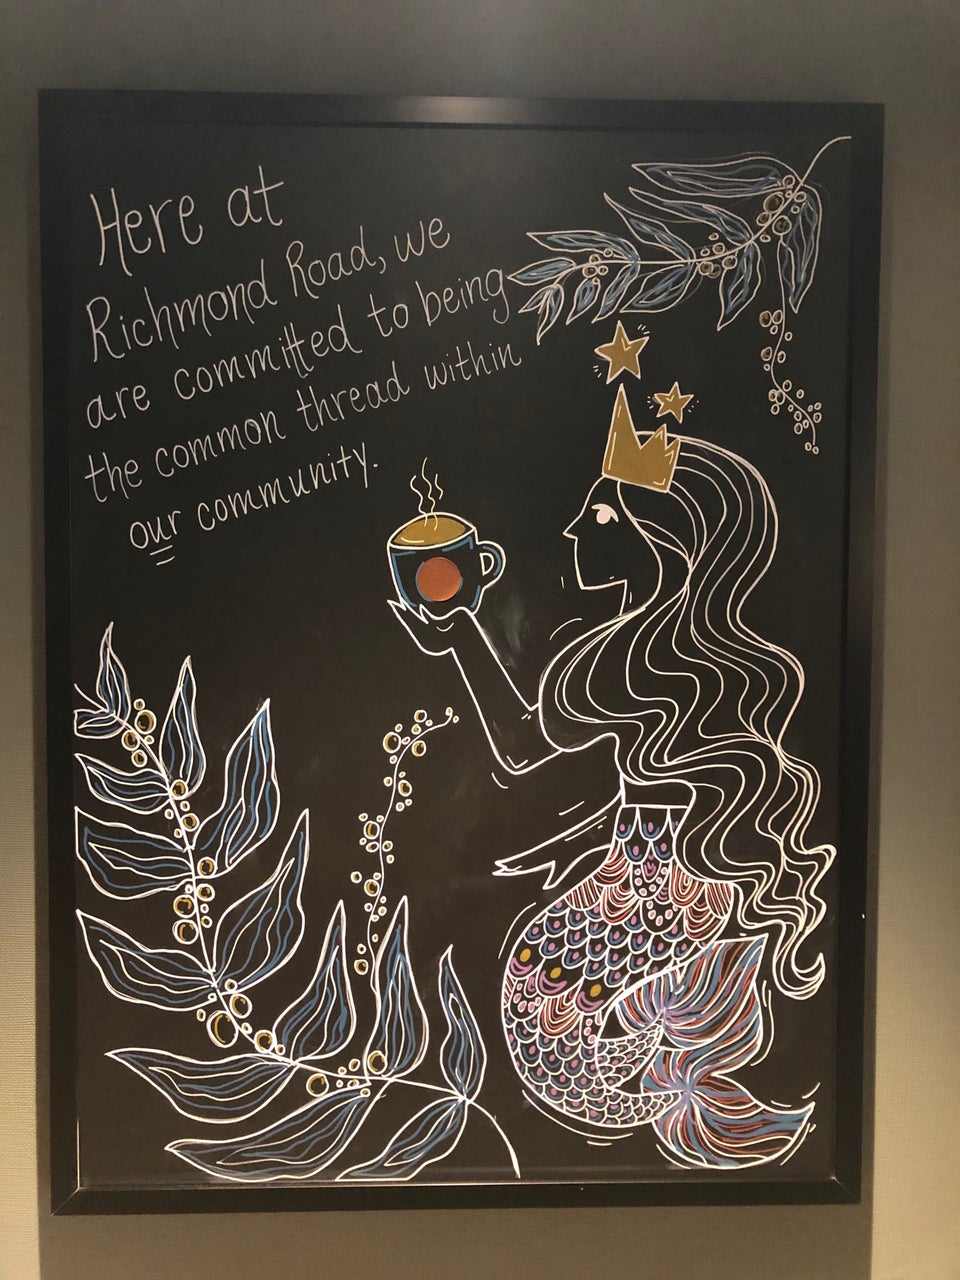 Here at
Richmond Road, we
are committed to being
the common thread within
our community.